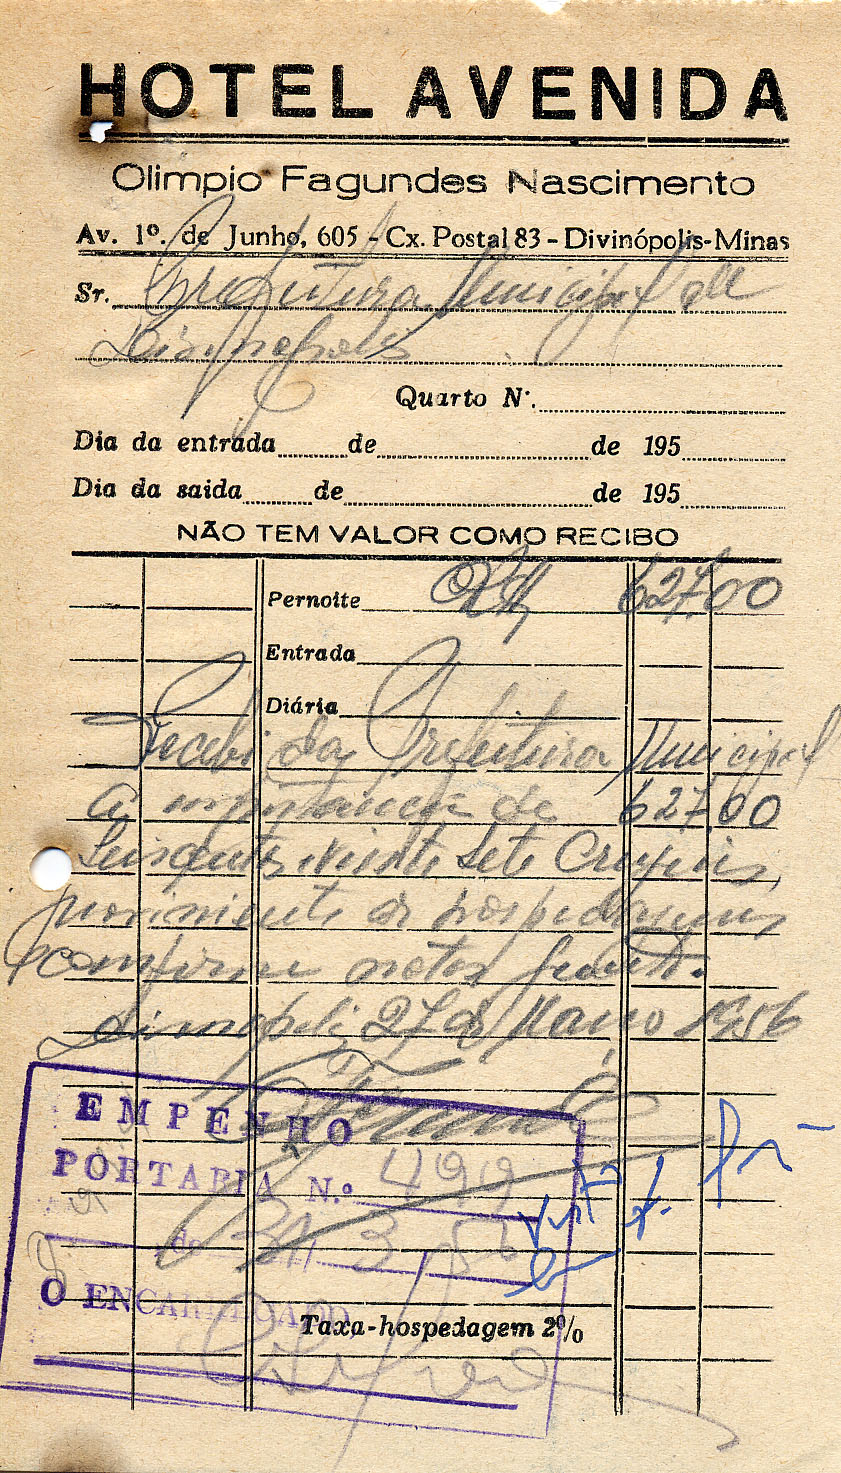 HOTEL AVENIDA
Olimpio Fagundes Nascimento
Av. 1º. de Junho, 605 - Cx. Postal 83 - Divinópolis-Minas
Sr. Prefeitura Municipal de
Divinopolis
Quarto Nº.
Dia da entrada de de 195
Dia da saida de de 195
NÃO TEM VALOR COMO RECIBO
Pernoite 627,00
Entrada
Diária
Recebi da Prefeitura Municipal
a importancia de 627,00
Seiscentos e Vinte Sete Cruzeiros,
proviniente de hospedagens
conforme notas
Divinopolis 27 de Março 1956
EMPENHO
PORTARIA N.º 499
de 31/3/56
O ENCARREGADO,
Taxa-hospedagem 2%